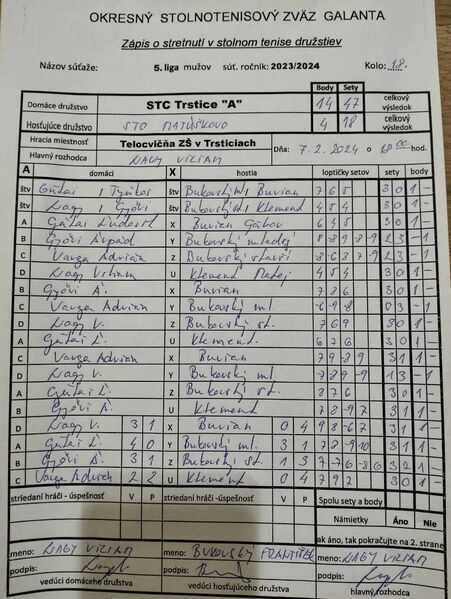 OKRESNÝ STOLNOTENISOVÝ ZVÄZ GALANTA
Zápis o stretnutí v stolnom tenise družstiev
Názov súťaže: 5. liga mužov súť. ročník: 2023/2024 Kolo: 18.
Body Sety
Domáce družstvo STC Trstice "A" 14 47 celkový výsledok
Hosťujúce družstvo STO MATÚŠKOVO 4 18 celkový výsledok
Hracia miestnosť Telocvičňa ZŠ v Trsticiach Dňa: 7.2.2024 o 18 00 hod.
Hlavný rozhodca NAGY VILIAM
A domáci X hostia loptičky setov sety body
štv Gútai / Bukovský ml / Buvian 7 6 5 3 0 1 -
štv Nagy / Győri Bukovský st / Klemend 4 5 4 3 0 1 -
A Gútai X Buvian Gábor 6 4 5 3 0 1 -
B Győri Árpád Y Bukovský mladší 8 -8 9 -8 -9 2 3 - 1
C Varga Adrián Z Bukovský starší -8 6 8 7 -9 2 3 - 1
D Nagy Viliam U Klemend Matej 4 5 4 3 0 1 -
B Győri Á. X Buvian 7 8 6 3 0 1 -
C Varga Adrián Y Bukovský ml. -6 -9 -8 0 3 - 1
D Nagy V. Z Bukovský st. 7 6 9 3 0 1 -
A Gútai U Klemend 6 7 6 3 0 1 -
C Varga Adrián X Buvian 7 9 -8 9 3 1 1 -
D Nagy V. Y Bukovský ml. -7 8 -9 -9 1 3 - 1
A Gútai Z Bukovský st. 8 7 6 3 0 1 -
B Győri Á. U Klemend 7 8 -9 7 3 1 1 -
D Nagy V. 3 1 X Buvian 0 4 9 8 -6 7 3 1 1 -
A Gútai 4 0 Y Bukovský ml. 3 1 7 8 -9 10 3 1 1 -
B Győri Á. 3 1 Z Bukovský st. 1 3 7 -7 6 -8 6 3 2 1 -
C Varga Adrián 2 2 U Klemend 0 4 7 9 2 3 0 1 -
striedaní hráči - úspešnosť V P striedaní hráči -úspešnosť V P Spolu sety a body
Námietky Áno Nie
ak áno, tak pokračujte na 2. strane
meno: NAGY VILIAM meno: BUKOVSKÝ FRANTIŠEK meno: NAGY VILIAM
podpis: podpis: podpis:
vedúci domáceho družstva vedúci hosťujúceho družstva hlavný rozhodca